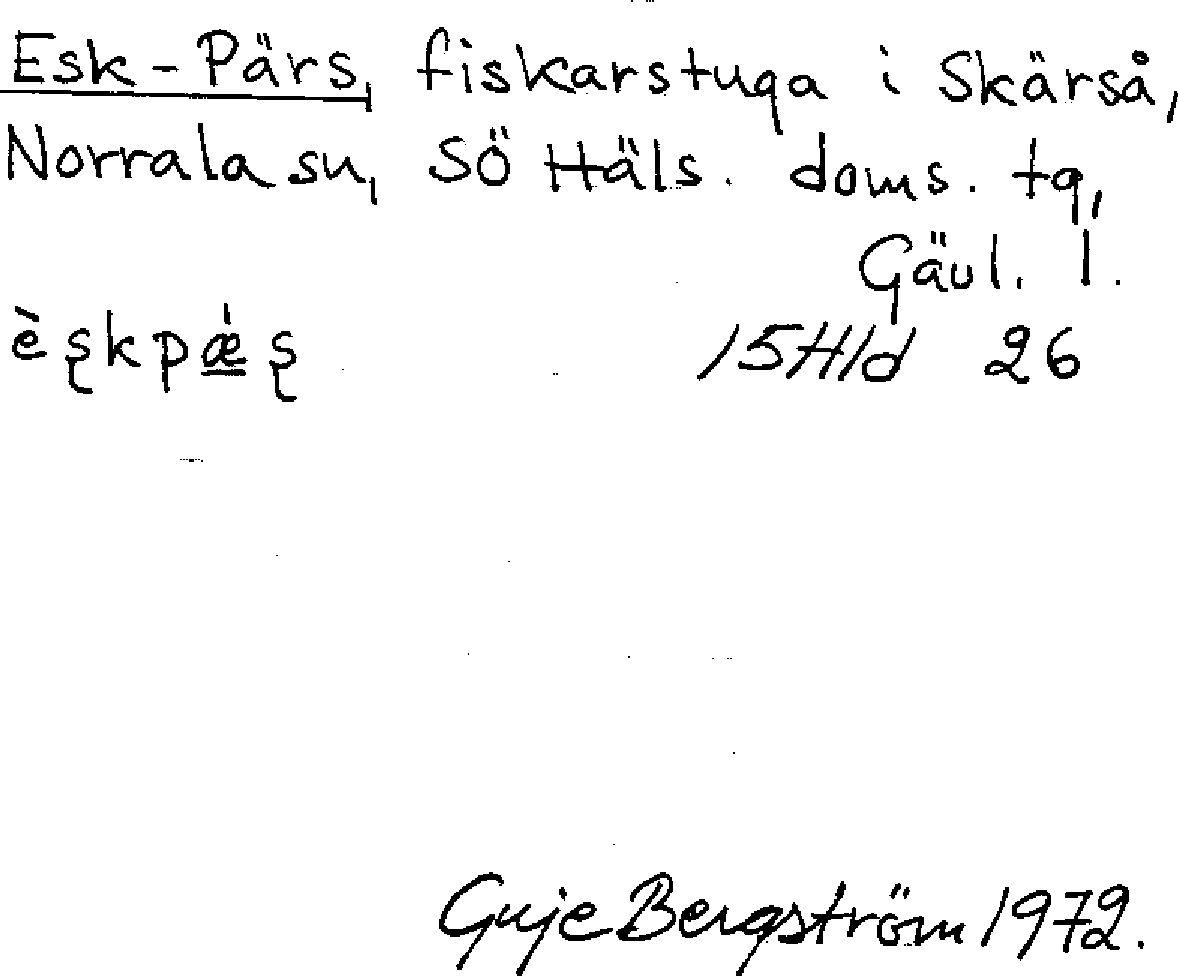 Esk-Pärs, fiskarstuga i Skärså,
Norrala sn, SÖ Häls. doms. tg,
Gävl. l.
è ʂkpǽʂ 15H1d 26
Guje Bergström 1972.